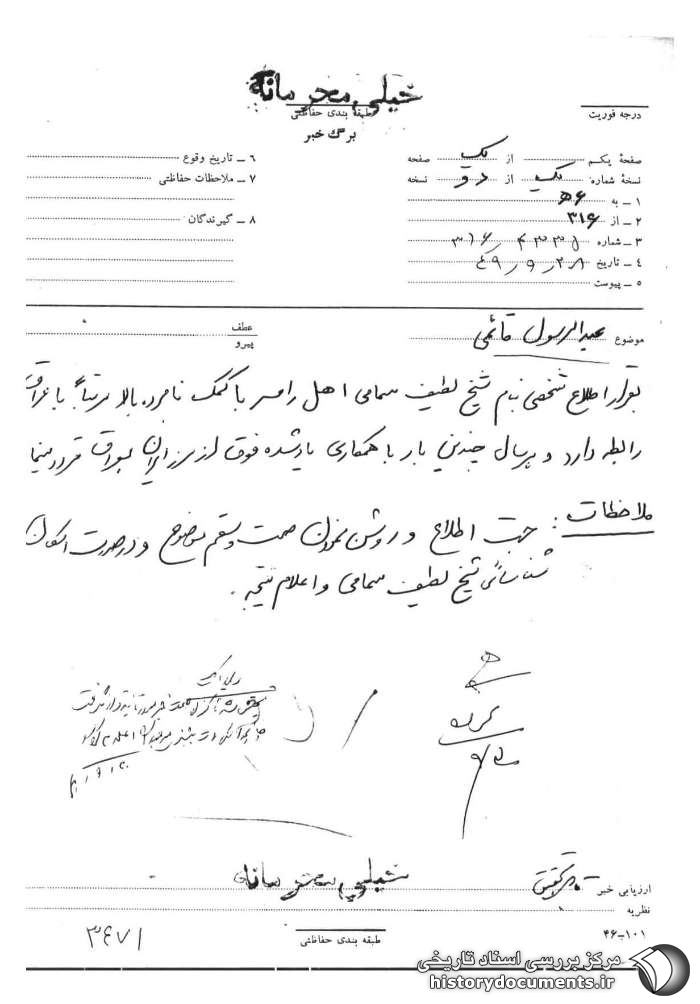 خیلی محرمانه
طبقه بندی حفاظتی
برگ خبر
درجه فوریت
صفحهٔ یکم از یک صفحه
نسخهٔ شماره یک از دو نسخه
۱ – به ۵۶
۲ – از ۳۱۶
۳ – شماره ۴۳۳۵ / ۳۱۶
۴ – تاریخ ۲۸ / ۹ / ۴۹
۵ – پیوست
۶ – تاریخ وقوع
۷ – ملاحظات حفاظتی
۸ – گیرندگان
موضوع عبدالرسول قائمی
عطف
پیرو
بقرار اطلاع شخصی بنام شیخ لطیف سمامی اهل رامسر با کمک نامبرده بالا مرتباً با عراق
رابطه دارد و هر سال چندین بار با همکاری یاد شده فوق از مرز ایران بعراق تردد مینماید
ملاحظات : جهت اطلاع و روشن نمودن صحت و سقم موضوع و در صورت امکان
شناسائی شیخ لطیف سمامی و اعلام نتیجه .
خیلی محرمانه
ارزیابی خبر
نظریه
طبقه بندی حفاظتی
۳۴۷۱
۴۶-۱۰۱
مرکز بررسی اسناد تاریخی
historydocuments.ir